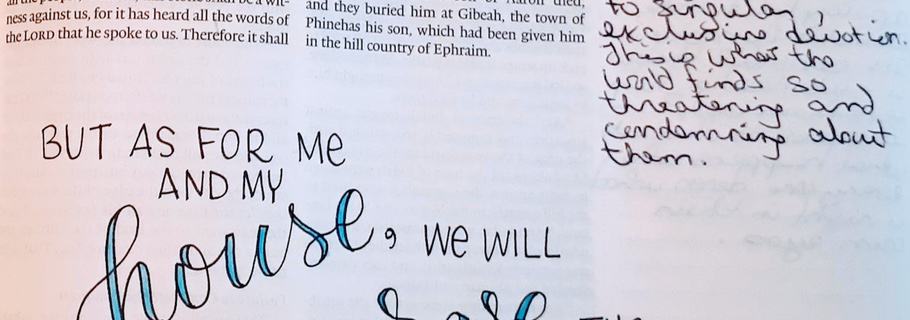 ness against us, for it has heard all the words of
the LORD that he spoke to us. Therefore it shall
and they buried him at Gibeah, the town of
Phinehas his son, which had been given him
in the hill country of Ephraim.
to singular,
exclusive devotion.
This is what the
world finds so
threatening and
condemning about
them.
BUT AS FOR Me
AND MY
house, we WILL